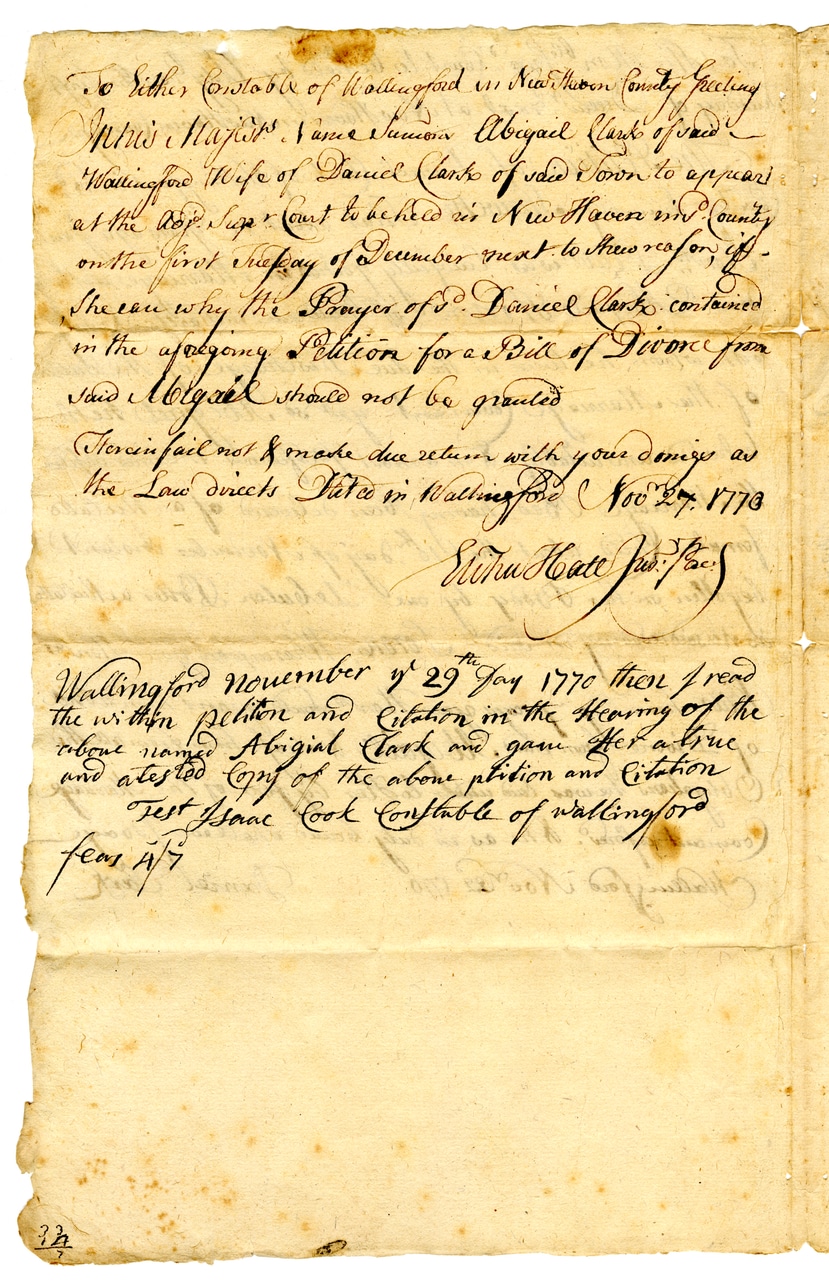 To Either Constable of Wallingford in New Haven County Greeting
In his Majests Name Sumon Abigail Clark of said
Wallingford Wife of Daniel Clark of said Town to appear
at the Adjd. Supr Court to be held in New Haven in sd. County
on the first Tuesday of December next to shew reason, if
she can why the Prayer of sd. Daniel Clark contained
in the aforegoing Petition for a Bill of Divorce from
said Abigail should not be granted
Herein fail not & make due return with your doings as
the Law directs Dated in Wallingford Novr 27. 1770
Elihu Hall Just. Pac:
Wallingford november ye 29th Day 1770 then I read
the within petition and Citation in the Hearing of the
above named Abigial Clark and gave Her a true
and atested Copy of the above ptition and Citation
Test Isaac Cook Constable of wallingford
fees 4/7